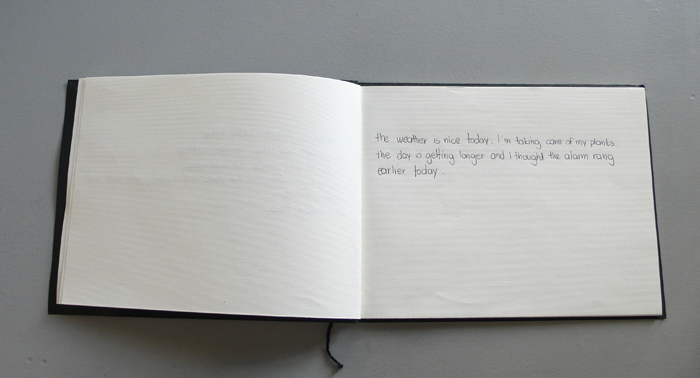 the weather is nice today. I'm taking care of my plants.
the day is getting longer and I thought the alarm rang
earlier today.